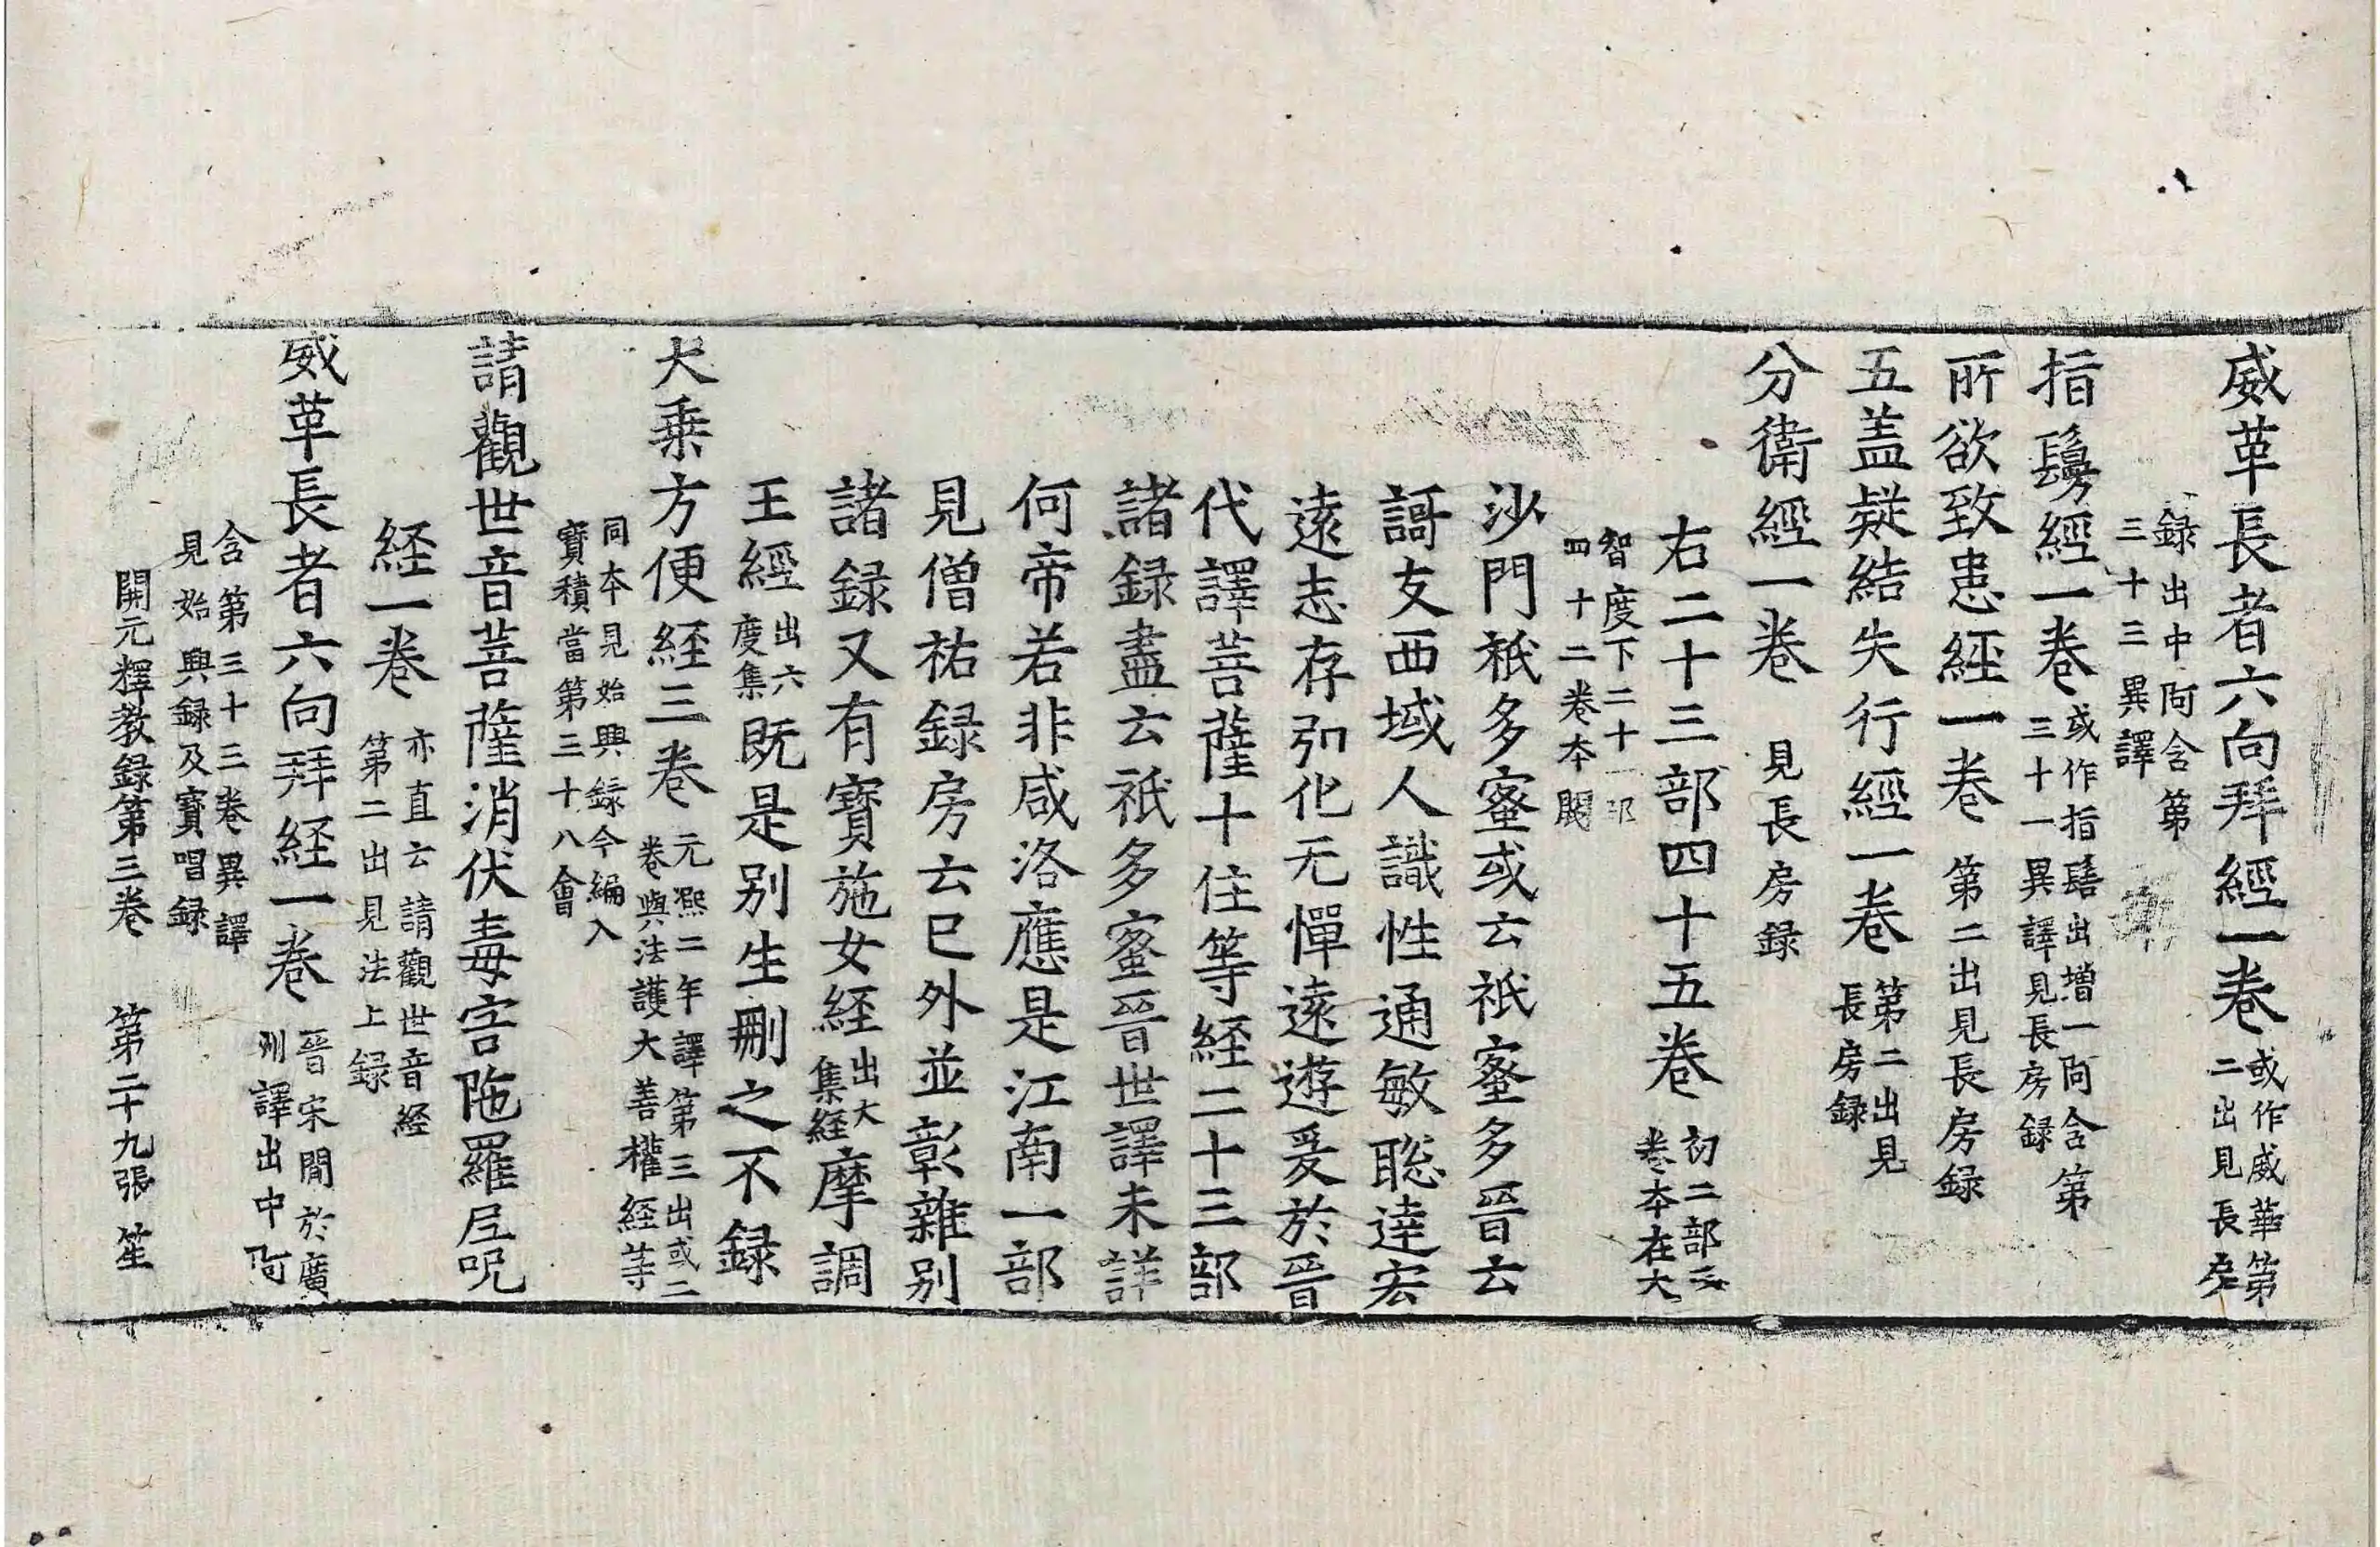 威革長者六向拜經一卷或作威華第二出見長房
録出中阿含第三十三異譯
指鬘經一卷或作指髻出增一阿含第三十一異譯見長房録
所欲致患經一卷第二出見長房録
五盖疑結失行經一卷第二出見長房録
分衛經一卷見長房録
右二十三部四十五卷初二部三卷本在大
智度下二十一部四十二卷本闕
沙門祇多蜜或云祇蜜多晉云
謌友西域人識性通敏聡達宏
遠志存弘化无憚遠遊爰於晉
代譯菩薩十住等経二十三部
諸録盡云祇多蜜晉世譯未詳
何帝若非咸洛應是江南一部
見僧祐録房云已外並彰雜别
諸録又有寶施女経出大集経摩調
王經出六度集既是别生刪之不録
大乗方便経三卷元熙二年譯第三出或二卷與法護大善權経等
同本見始興録今編入寶積當第三十八會
請觀世音菩薩消伏毒害陁羅尼呪
経一卷亦直云請觀世音経第二出見法上録
威革長者六向拜経一卷晉宋閒於廣州譯出中阿
含第三十三卷異譯見始興録及寶唱録
開元釋教録第三卷 第二十九張 笙